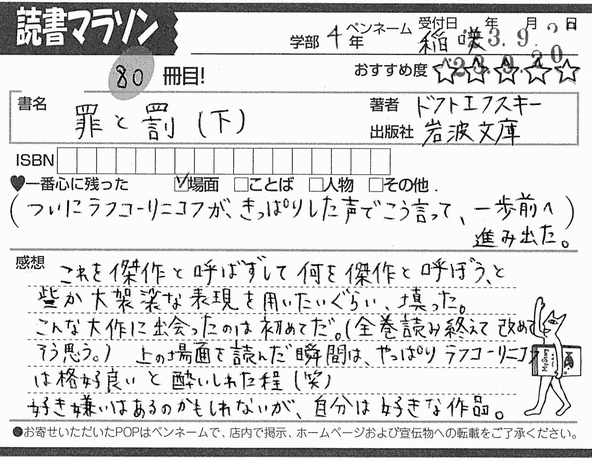 読書マラソン
学部 4年 ペンネーム 稲咲 受付日 年 月 日
80 冊目! おすすめ度 ☆☆☆☆☆
書名 罪と罰(下) 著者 ドストエフスキー
出版社 岩波文庫
ISBN
♥一番心に残った ☑場面 □ことば □人物 □その他.
(ついにラフコーリニコフが、きっぱりした声でこう言って、一歩前へ
進み出た。)
感想 これを傑作と呼ばずして何を傑作と呼ぼう、と
些か大袈裟な表現を用いたいぐらい、填った。
こんな大作に出会ったのは初めてだ。(全巻読み終えて改めて
そう思う。) 上の場面を読んだ瞬間は、やっぱりラフコーリニコフ
は格好良いと酔いしれた程(笑)
好き嫌いはあるのかもしれないが、自分は好きな作品。
●お寄せいただいたPOPはペンネームで、店内で掲示、ホームページおよび宣伝物への転載をご了承ください。